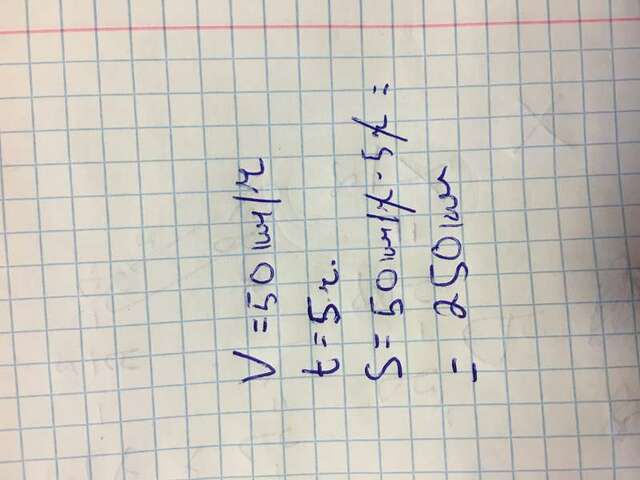 V = 50 км/ч
t = 5 ч.
S = 50 км/ч · 5 ч =
= 250 км